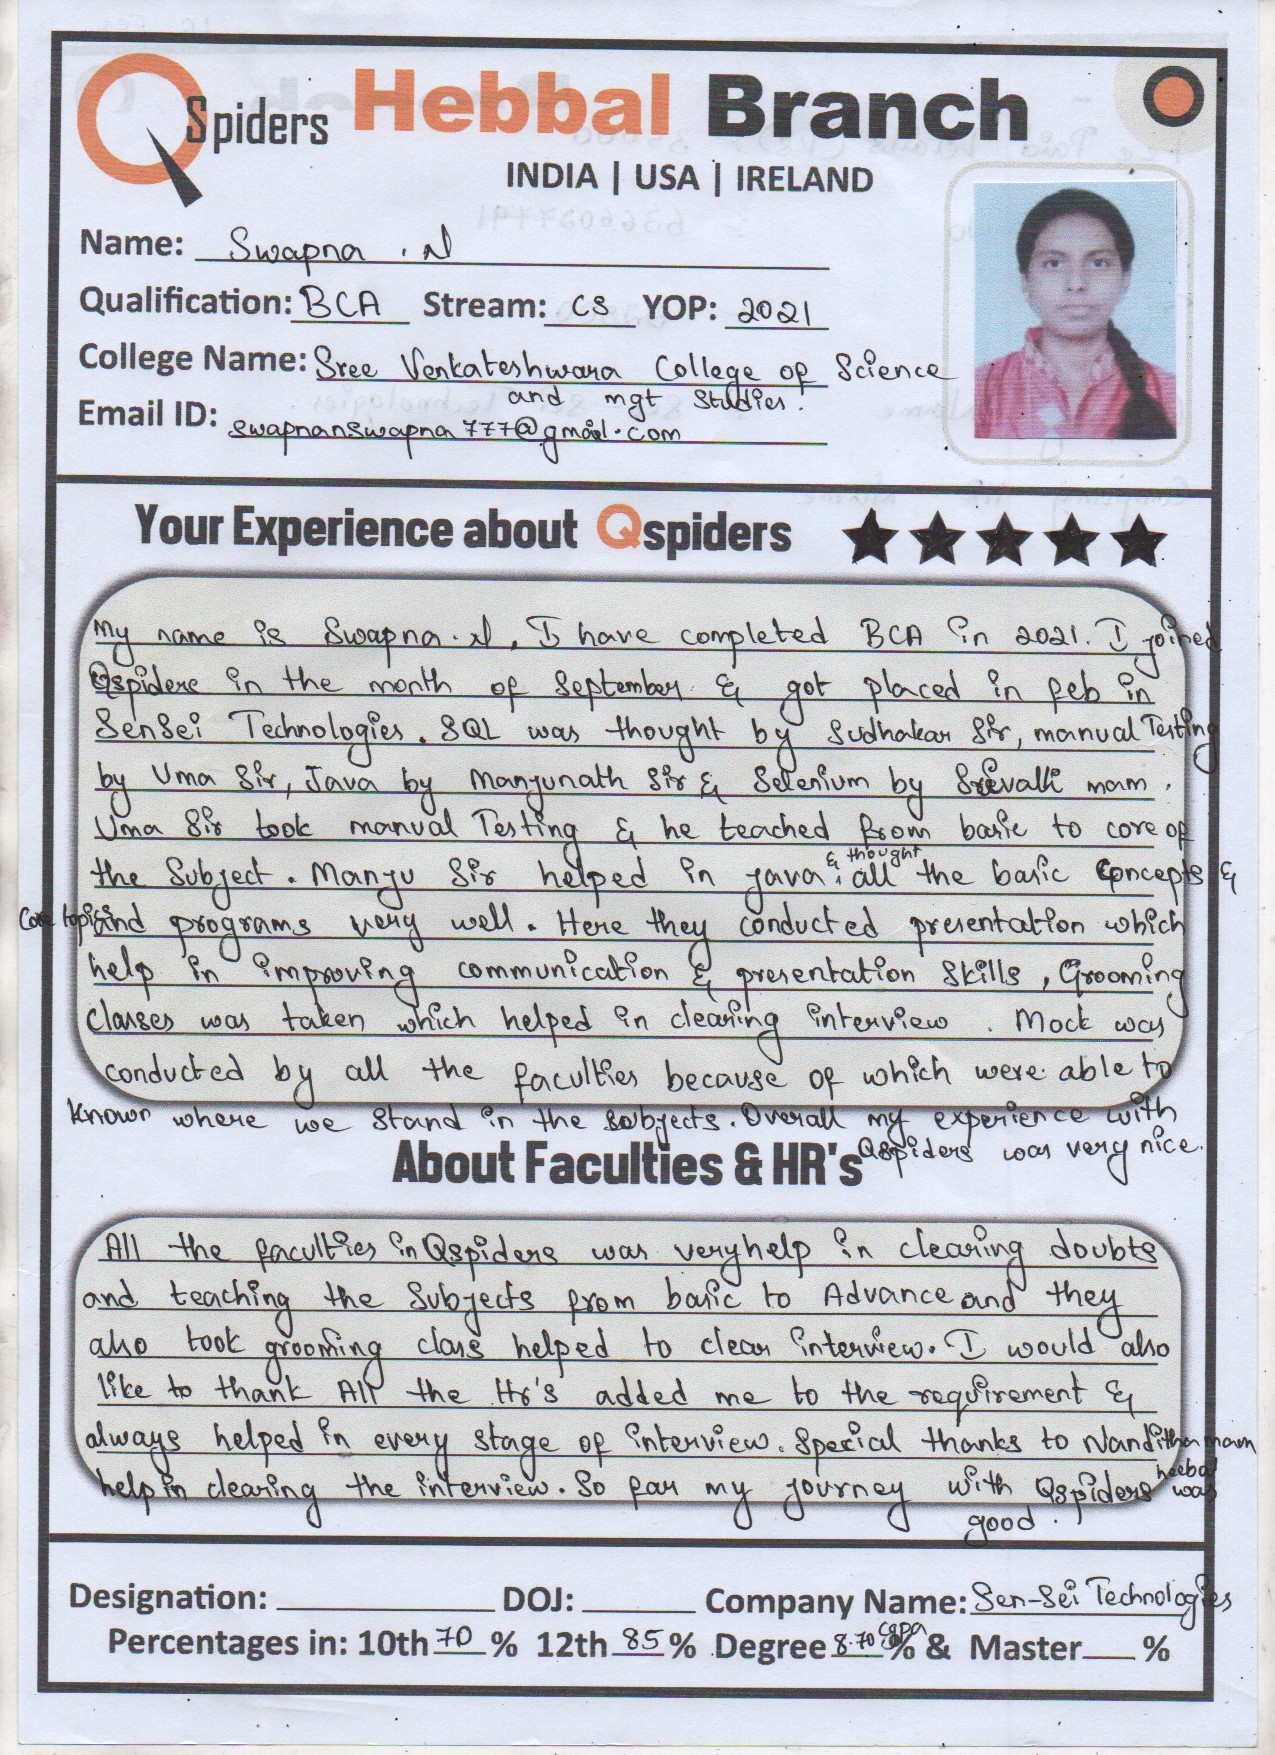 Qspiders Hebbal Branch
INDIA | USA | IRELAND
Name: Swapna . N
Qualification: BCA Stream: CS YOP: 2021
College Name: Sree Venkateshwara College of Science
and mgt Studies.
Email ID: swapnanswapna777@gmail.com
Your Experience about Qspiders
My name is Swapna. N, I have completed BCA in 2021. I joined
Qspiders in the month of September & got placed in feb in
SenSei Technologies. SQL was thought by Sudhakar Sir, manual Testing
by Uma Sir, Java by Manjunath Sir & Selenium by Srevalli mam.
Uma Sir took manual Testing & he teached from basic to core of
& thought
the Subject. Manju Sir helped in java, all the basic Concepts &
Core topic and programs very well. Here they conducted presentation which
help in improving communication & presentation skills, Grooming
Classes was taken which helped in clearing interview. Mock was
conducted by all the faculties because of which were able to
known where we stand in the subjects. Overall my experience with
Qspiders was very nice.
About Faculties & HR's
All the faculties in Qspiders was very help in clearing doubts
and teaching the Subjects from basic to Advance and they
also took grooming class helped to clear interview. I would also
like to thank All the Hr's added me to the requirement &
always helped in every stage of interview. Special thanks to Nanditha mam
help in clearing the interview. So far my journey with Qspiders heebal was
good.
Designation: DOJ: Company Name: Sen-Sei Technologies
Percentages in: 10th 70 % 12th 85 % Degree 8.70 cgpa % & Master %